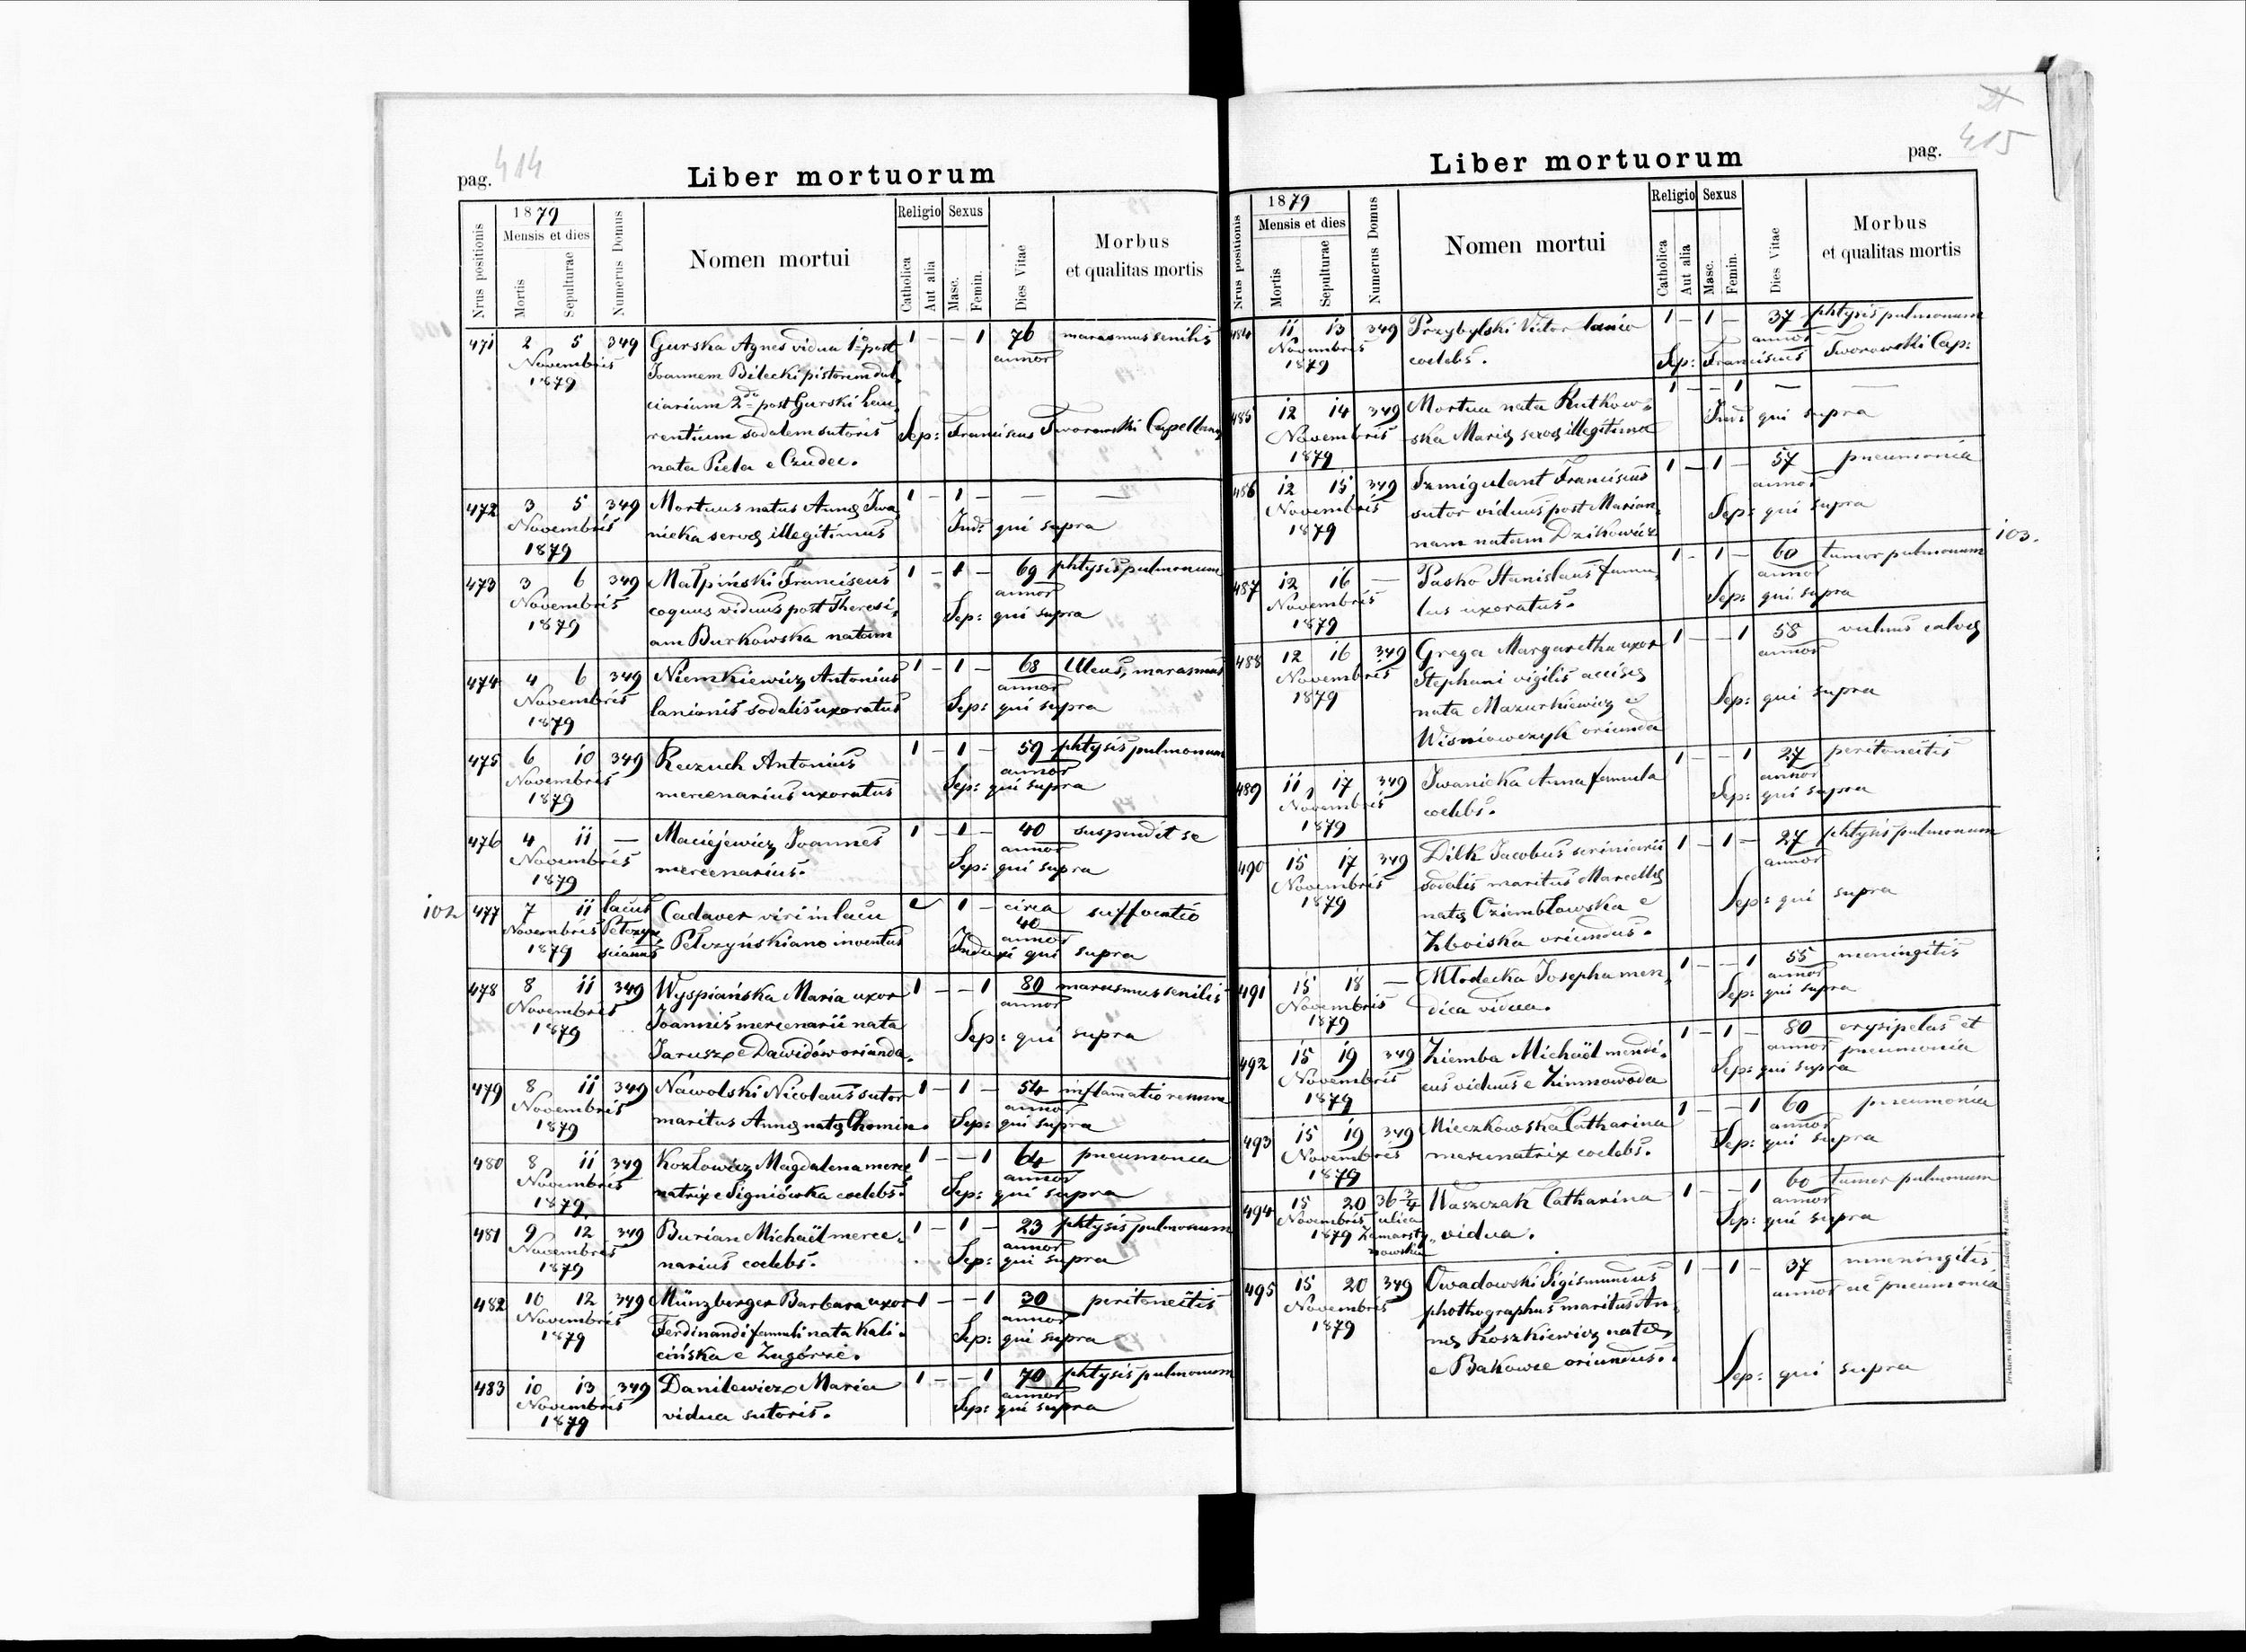 pag. 414
Liber mortuorum
Nrus positionis
1879
Mensis et dies
Mortis
Sepulturae
Numerus Domus
Nomen mortui
Religio
Catholica
Aut alia
Sexus
Masc.
Femin.
Dies Vitae
Morbus
et qualitas mortis
471 2 5 349 Gurska Agnes vidua 1º post 1 – – 1 76 marasmus senilis
Novembris annor
1879 Joannem Bilecki pistorem dul
ciarium 2do post Gurski Lau
rentium sodalem sutoris Sep: Franciscus Tworowski Capellanus
nata Piela e Czudec.
472 3 5 349 Mortuus natus Annæ Iwa 1 – 1 – — —
Novembris nicka servæ illegitimus Ind: qui supra
1879
473 3 6 349 Małpiński Franciscus 1 – 1 – 69 phtysis pulmonum
Novembris coquus viduus post Theresi, annor
1879 am Burkowska natam Sep: qui supra
474 4 6 349 Niemkiewicz Antonius 1 – 1 – 68 Ulcus, marasmus
Novembris lanionis sodalis uxoratus annor
1879 Sep: qui supra
475 6 10 349 Reczuch Antonius 1 – 1 – 59 phtysis pulmonum
Novembris mercenarius uxoratus annor
1879 Sep: qui supra
476 4 11 — Maciejewicz Joannes 1 – 1 – 40 suspendit se
Novembris mercenarius. annor
1879 Sep: qui supra
102 477 7 11 lacus Cadaver viri in lacu 1 – circa suffocatio
Novembris Pełczyń 40
1879 scianus Pełczyńskiano inventus annor
Induxi qui supra
478 8 11 349 Wyspiańska Maria uxor 1 – – 1 80 marasmus senilis
Novembris Joannis mercenarii nata annor
1879 Jarusz e Dawidów oriunda. Sep: qui supra
479 8 11 349 Nawolski Nicolaus sutor 1 – 1 – 54 inflamatio renum
Novembris maritus Annæ natæ Chomin. annor
1879 Sep: qui supra
480 8 11 349 Kozłowicz Magdalena merce 1 – – 1 64 pneumonia
Novembris natrix e Signiówka coelebs. annor
1879 Sep: qui supra
481 9 12 349 Burian Michaël merce, 1 – 1 – 23 phtysis pulmonum
Novembris narius coelebs. annor
1879 Sep: qui supra
482 10 12 349 Münzberger Barbara uxor 1 – – 1 30 peritoneitis
Novembris Ferdinandi famuli nata Kali, annor
1879 cińska e Zagórze. Sep: qui supra
483 10 13 349 Danilewicz Maria 1 – – 1 70 phtysis pulmonum
Novembris vidua sutoris. annor
1879 Sep: qui supra
pag. 415
Liber mortuorum
Nrus positionis
1879
Mensis et dies
Mortis
Sepulturae
Numerus Domus
Nomen mortui
Religio
Catholica
Aut alia
Sexus
Masc.
Femin.
Dies Vitae
Morbus
et qualitas mortis
484 11 13 349 Przybylski Victor lanio 1 – 1 – 37 phtysis pulmonum
Novembris coelebs. annor
1879 Sep: Franciscus Tworowski Cap:
485 12 14 349 Mortua nata Rutkow, 1 – – 1 — —
Novembris ska Mariæ servæ illegitima Ind: qui supra
1879
486 12 15 349 Szmigulant Franciscus 1 – 1 – 57 pneumonia
Novembris sutor viduus post Marian, annor
1879 nam natam Dzikowicz Sep: qui supra
103.
487 12 16 — Pasko Stanislaus famu, 1 – 1 – 60 tumor pulmonum
Novembris lus uxoratus. annor
1879 Sep: qui supra
488 12 16 349 Grega Margaretha uxor 1 – – 1 58 vulnus calvæ
Novembris Stephani vigilis accisæ annor
1879 nata Mazurkiewicz e Sep: qui supra
Wisniowczyk oriunda
489 11 17 349 Iwanicka Anna famula 1 – – 1 27 peritoneitis
Novembris coelebs. annor
1879 Sep: qui supra
490 15 17 349 Dilk Jacobus scriniarii 1 – 1 – 27 phtysis pulmonum
Novembris sodalis maritus Marcellæ annor
1879 natæ Oziembłowska e Sep: qui supra
Zboiska oriundus.
491 15 18 — Młodecka Josepha men, 1 – – 1 55 meningitis
Novembris dica vidua. annor
1879 Sep: qui supra
492 15 19 349 Ziemba Michaël mendi, 1 – 1 – 80 erysipelas et
Novembris cus viduus e Zimnowoda annor pneumonia
1879 Sep: qui supra
493 15 19 349 Mieczkowska Catharina 1 – – 1 60 pneumonia
Novembris mercenatrix coelebs. annor
1879 Sep: qui supra
494 15 20 36 3/4 Waszczak Catharina 1 – – 1 60 tumor pulmonum
Novembris ulica annor
1879 Zamarsty, vidua. Sep: qui supra
nowska
495 15 20 349 Owadowski Sigismundus 1 – 1 – 37 meningitis
Novembris phothographus maritus An, annor ac pneumonia
1879 næ Koszkiewicz natæ
e Bakowce oriundus. Sep: qui supra